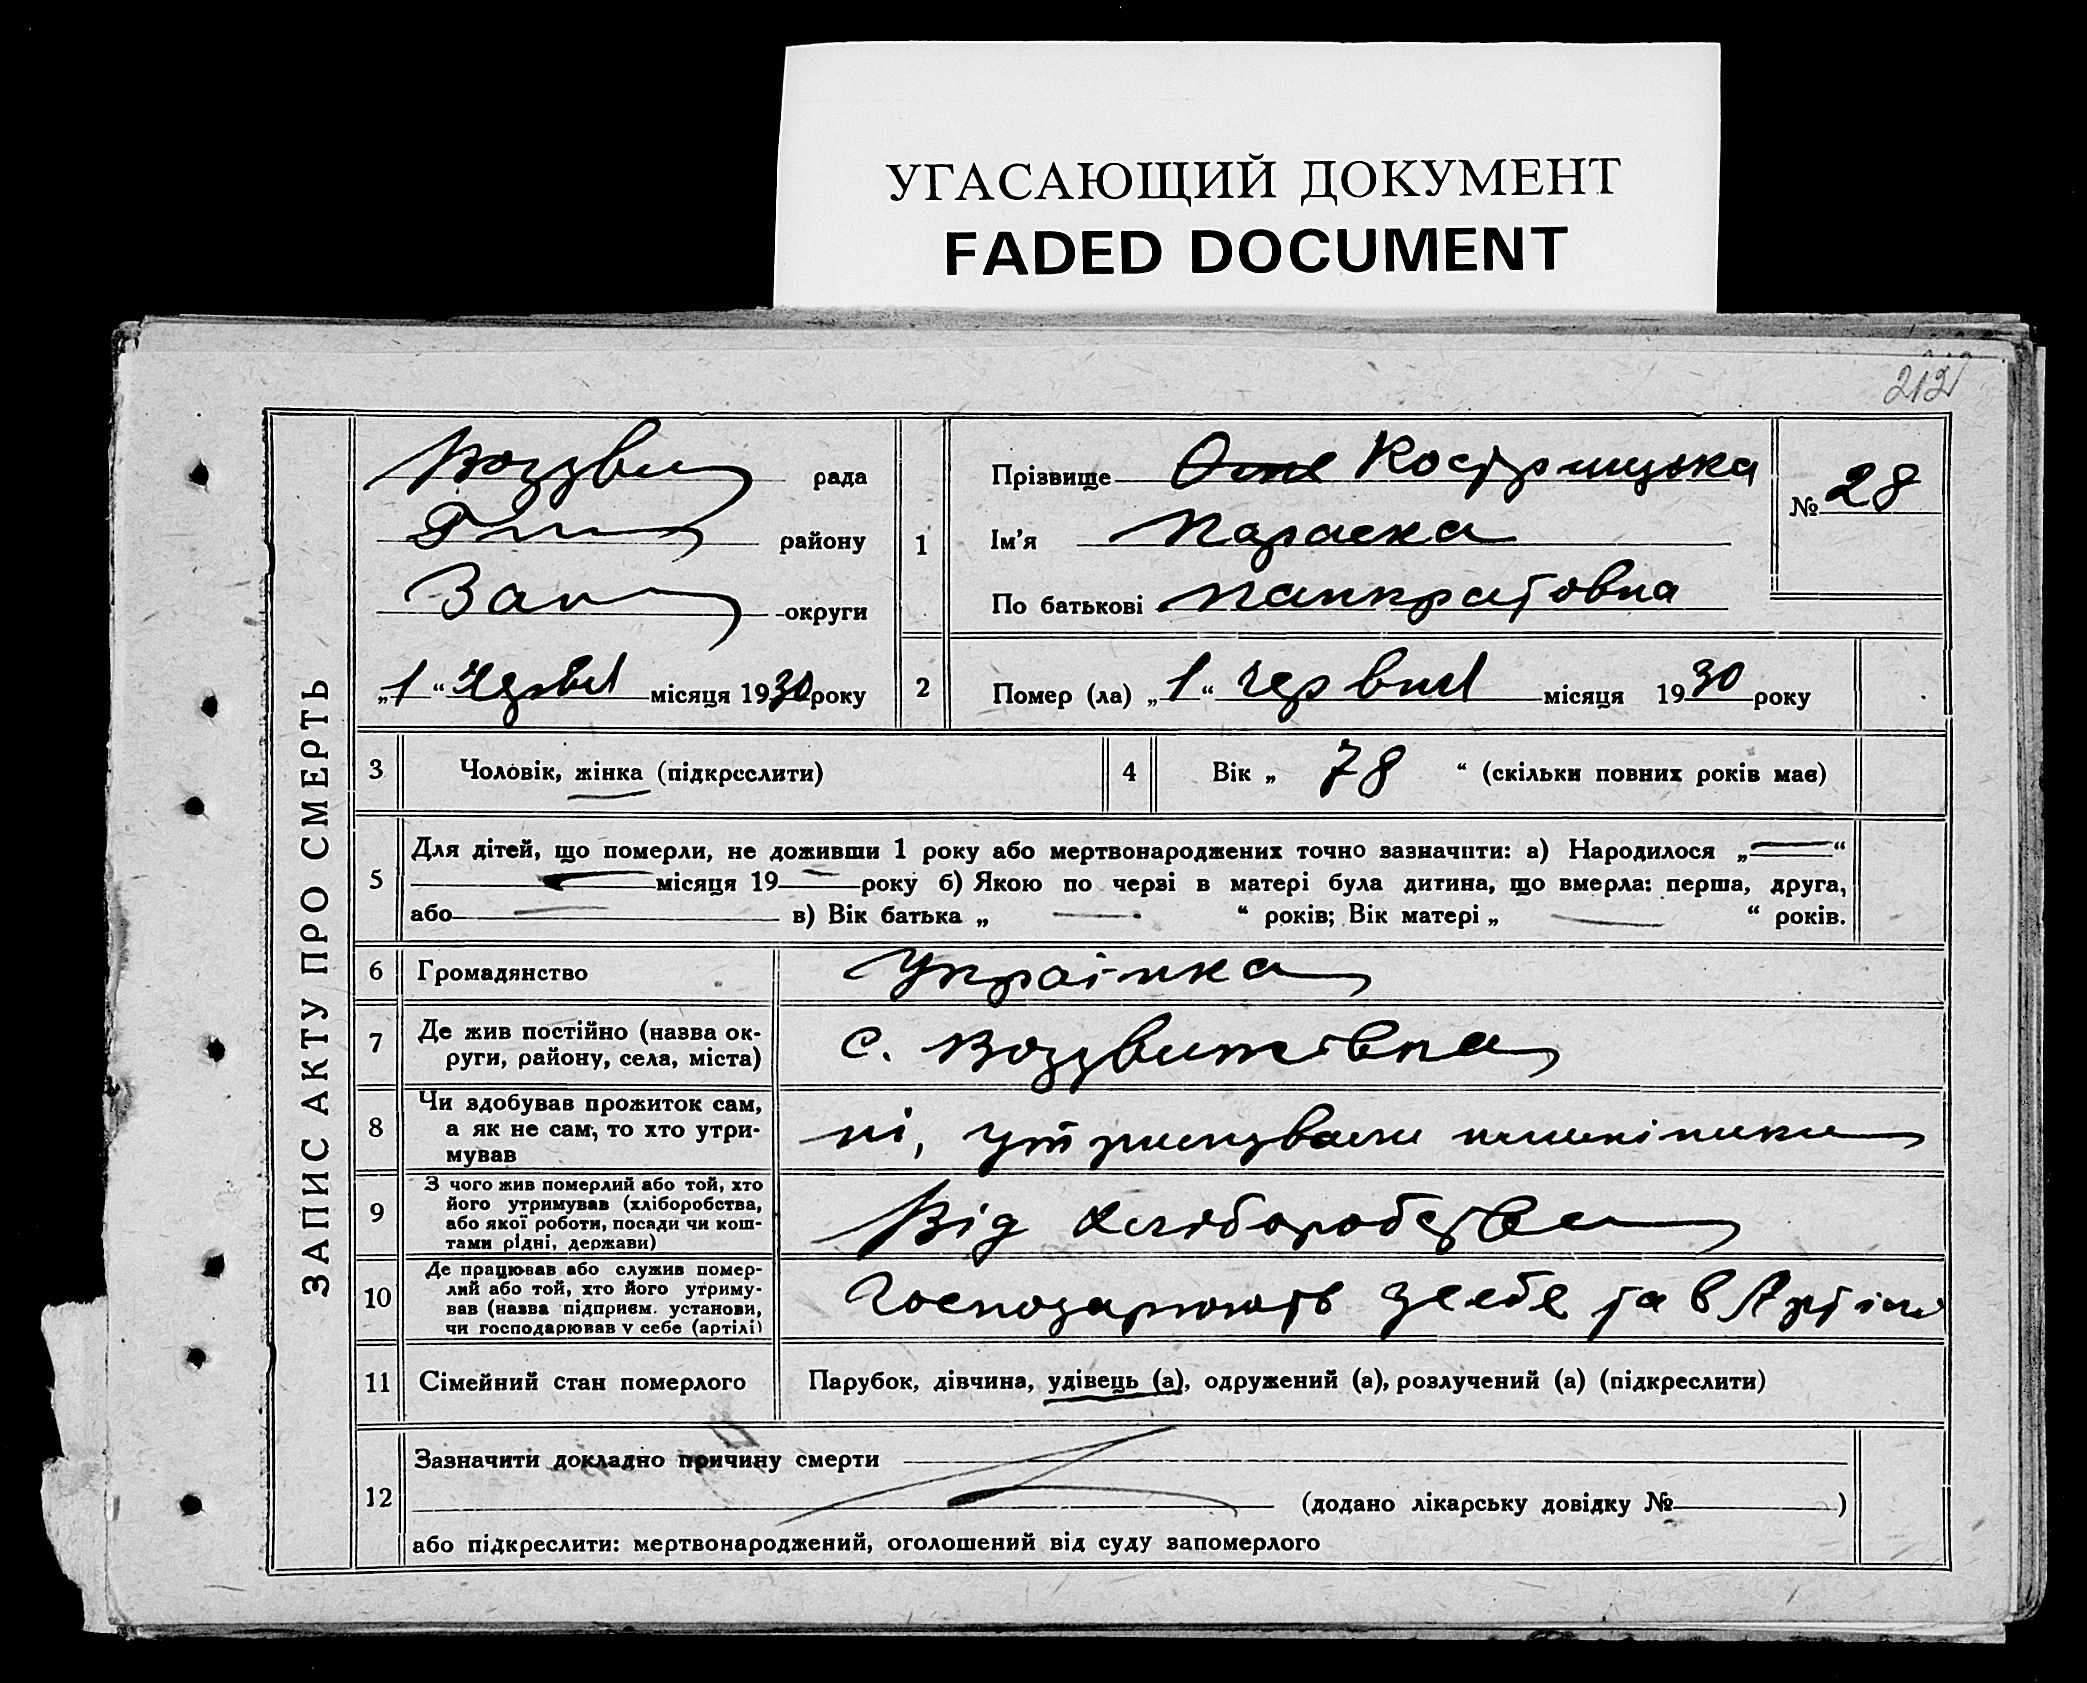 УГАСАЮЩИЙ ДОКУМЕНТ
FADED DOCUMENT
212
ЗАПИС АКТУ ПРО СМЕРТЬ
Воздви рада
району
Зап округи
„1“ червня місяця 1930 року
1
Прізвище Кострицька
Ім’я Параска
По батькові Панкратовна
№ 28
2
Помер (ла) „1“ червня місяця 1930 року
3 Чоловік, жінка (підкреслити)
4 Вік „ 78 “ (скільки повних років має)
5
Для дітей, що померли, не доживши 1 року або мертвонароджених точно зазначити: а) Народилося „—“
— місяця 19— року б) Якою по черзі в матері була дитина, що вмерла: перша, друга,
або — в) Вік батька „ — “ років; Вік матері „ — “ років.
6 Громадянство Українка
7 Де жив постійно (назва ок-
руги, району, села, міста)
с. Воздвижівка
8 Чи здобував прожиток сам,
а як не сам, то хто утри-
мував
ні, утримували
9 З чого жив померлий або той, хто
його утримував (хліборобства,
або якої роботи, посади чи кош-
тами рідні, держави)
Від хліборобства
10 Де працював або служив помер-
лий або той, хто його утриму-
вав (назва підприєм. установи,
чи господарював у себе (артілі)
Господарюють у себе та в Артілі
11 Сімейний стан померлого
Парубок, дівчина, удівець (а), одружений (а), розлучений (а) (підкреслити)
12 Зазначити докладно причину смерти
(додано лікарську довідку № )
або підкреслити: мертвонароджений, оголошений від суду запомерлого